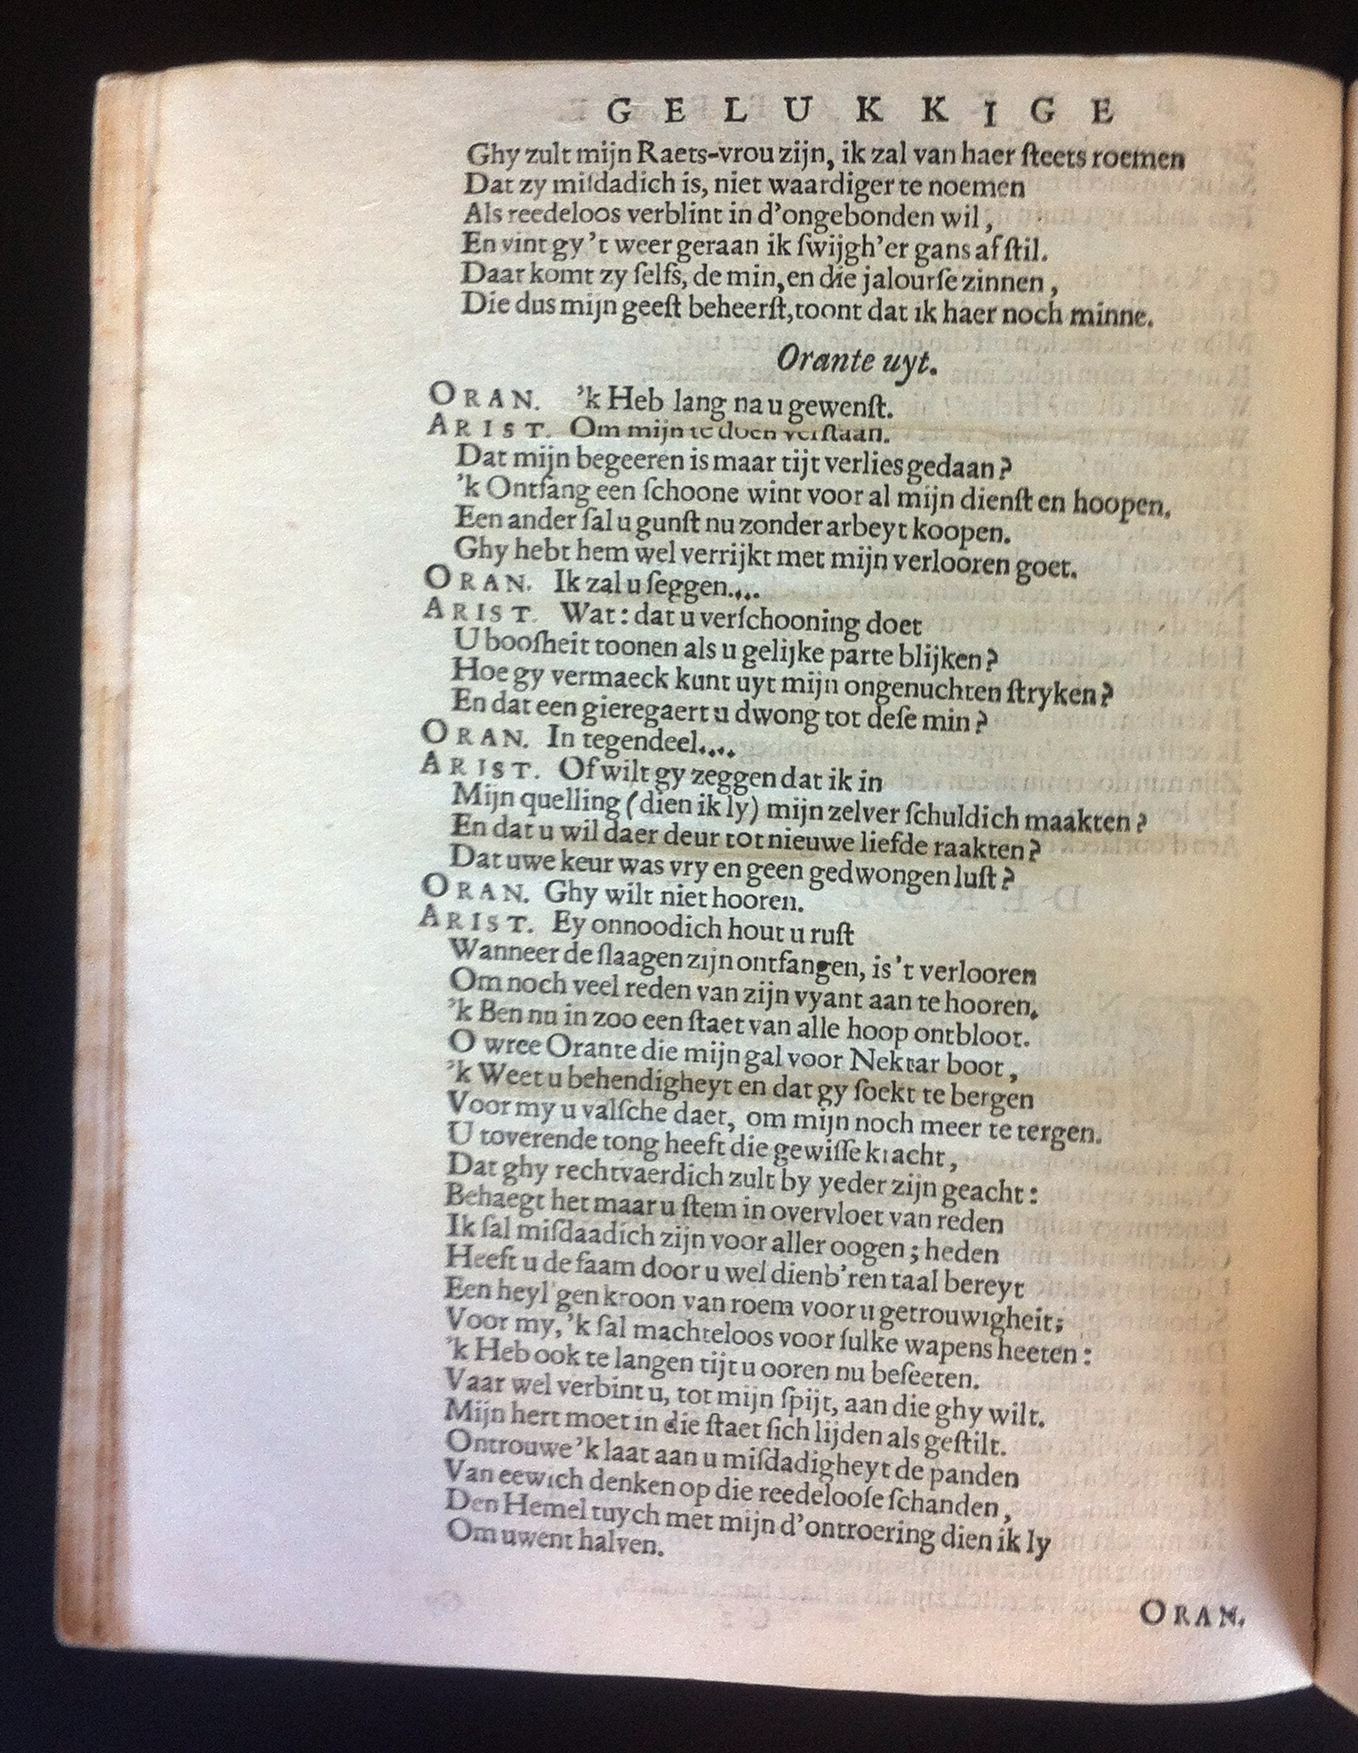 GELUKKIGE
Ghy zult mijn Raets-vrou zijn, ik zal van haer ſteets roemen
Dat zy miſdadich is, niet waardiger te noemen
Als reedeloos verblint in d'ongebonden wil,
En vint gy 't weer geraan ik ſwijgh'er gans af ſtil.
Daar komt zy ſelfs, de min, en die jalourſe zinnen,
Die dus mijn geeſt beheerſt, toont dat ik haer noch minne.
Orante uyt.
ORAN. 'k Heb lang na u gewenſt.
ARIST. Om mijn te doen verſtaan.
Dat mijn begeeren is maar tijt verlies gedaan?
'k Ontfang een ſchoone wint voor al mijn dienſt en hoopen.
Een ander ſal u gunſt nu zonder arbeyt koopen.
Ghy hebt hem wel verrijkt met mijn verlooren goet.
ORAN. Ik zal u ſeggen....
ARIST. Wat: dat u verſchooning doet
U booſheit toonen als u gelijke parte blijken?
Hoe gy vermaeck kunt uyt mijn ongenuchten ſtryken?
En dat een gieregaert u dwong tot deſe min?
ORAN. In tegendeel....
ARIST. Of wilt gy zeggen dat ik in
Mijn quelling (dien ik ly) mijn zelver ſchuldich maakten?
En dat u wil daer deur tot nieuwe liefde raakten?
Dat uwe keur was vry en geen gedwongen luſt?
ORAN. Ghy wilt niet hooren.
ARIST. Ey onnoodich hout u ruſt
Wanneer de ſlaagen zijn ontfangen, is 't verlooren
Om noch veel reden van zijn vyant aan te hooren.
'k Ben nu in zoo een ſtaet van alle hoop ontbloot.
O wree Orante die mijn gal voor Nektar boot,
'k Weet u behendigheyt en dat gy ſoekt te bergen
Voor my u valſche daet, om mijn noch meer te tergen.
U toverende tong heeft die gewiſſe kracht,
Dat ghy rechtvaerdich zult by yeder zijn geacht:
Behaegt het maar u ſtem in overvloet van reden
Ik ſal miſdaadich zijn voor aller oogen; heden
Heeft u de faam door u wel dienb'ren taal bereyt
Een heyl'gen kroon van roem voor u getrouwigheit;
Voor my, 'k ſal machteloos voor ſulke wapens heeten:
'k Heb ook te langen tijt u ooren nu beſeeten.
Vaar wel verbint u, tot mijn ſpijt, aan die ghy wilt.
Mijn hert moet in die ſtaet ſich lijden als geſtilt.
Ontrouwe 'k laat aan u miſdadigheyt de panden
Van eewich denken op die reedelooſe ſchanden,
Den Hemel tuych met mijn d'ontroering dien ik ly
Om uwent halven.
ORAN.